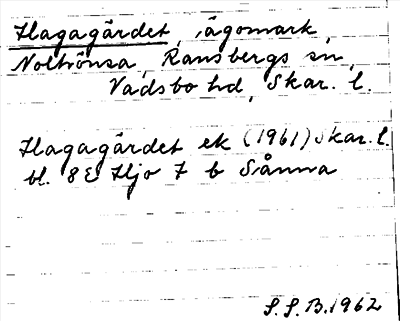 Hagagärdet, ägomark,
Noltrönsa, Ransbergs sn,
Vadsbo hd, Skar. l.
Hagagärdet ek (1961) Skar. l.
bl. 8E Hjo 7 b Sånna
S. S. B. 1962